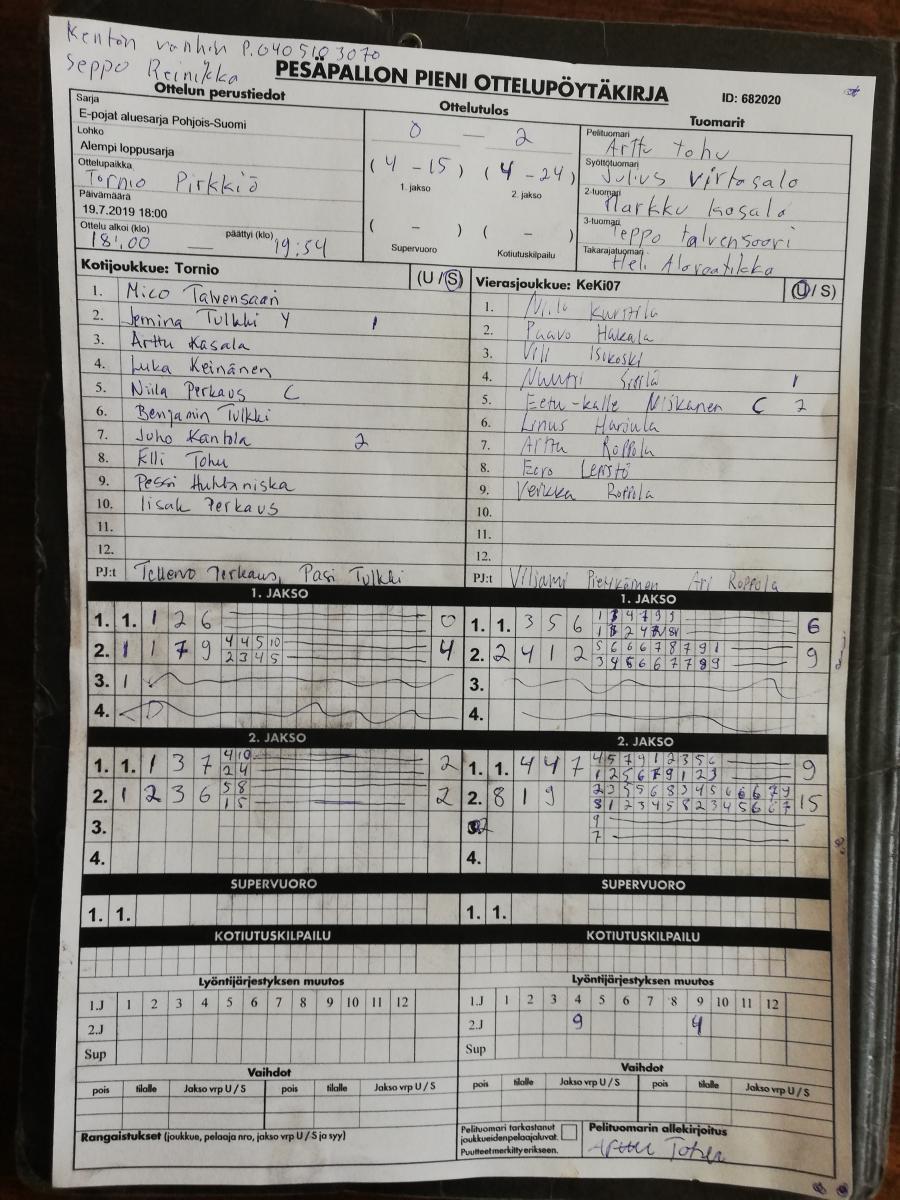 Kentän vanhin P.0405183070
Seppo Reinikka
PESÄPALLON PIENI OTTELUPÖYTÄKIRJA
ID: 682020
Ottelun perustiedot
Sarja
E-pojat aluesarja Pohjois-Suomi
Lohko
Alempi loppusarja
Ottelupaikka
Tornio Pirkkiö
Päivämäärä
19.7.2019 18:00
Ottelu alkoi (klo) päättyi (klo)
18:00 — 19:54
Ottelutulos
0 — 2
(4 - 15) (4 - 24)
1. jakso 2. jakso
( - ) ( - )
Supervuoro Kotiutuskilpailu
Tuomarit
Pelituomari
Arttu Tohu
Syöttötuomari
Julius Virtasalo
2-tuomari
Markku Kosalo
3-tuomari
Teppo Talvensaari
Takarajatuomari
Heli
Kotijoukkue: Tornio (U / S)
1. Mico Talvensaari
2. Jemina Tulkki Y 1
3. Arttu Kasala
4. Luka Keinänen
5. Niila Perkaus C
6. Benjamin Tulkki
7. Juho Kantola 2
8. Elli Tohu
9. Pessi Huhtaniska
10. Iisak Perkaus
11.
12.
PJ:t Tellervo Perkaus, Pasi Tulkki
Vierasjoukkue: KeKi07 (U / S)
1. Niilo Kurttila
2. Paavo Hakala
3. Vili Isokoski
4. Nuutti 1
5. Eetu-Kalle Niskanen C 2
6. Linus Harjula
7. Arttu Roppola
8. Eero Lepistö
9. Veikka Roppola
10.
11.
12.
PJ:t Viljami Ari Roppola
1. JAKSO
1. 1. 1 2 6 0
2. 1 1 7 9 4 4 5 10 4
2 3 4 5
3. 1
4.
1. JAKSO
1. 1. 3 5 6 6
2. 2 4 1 2 5 6 6 6 7 8 7 9 1 9
3 4 5 6 6 7 7 8 9
3.
4.
2. JAKSO
1. 1. 1 3 7 4 10 2
2 4
2. 1 2 3 6 5 8 2
1 5
3.
4.
2. JAKSO
1. 1. 4 4 7 4 5 7 9 1 2 3 5 6 9
1 2 5 6 7 9 1 2 3
2. 8 1 9 2 3 5 5 6 8 3 4 5 6 6 6 7 9 15
3 1 2 3 4 5 8 2 3 4 5 6 6 7
9
7
4.
SUPERVUORO
1. 1.
SUPERVUORO
1. 1.
KOTIUTUSKILPAILU
KOTIUTUSKILPAILU
Lyöntijärjestyksen muutos
1.J 1 2 3 4 5 6 7 8 9 10 11 12
2.J
Sup
Lyöntijärjestyksen muutos
1.J 1 2 3 4 5 6 7 8 9 10 11 12
2.J 9 4
Sup
Vaihdot
pois tilalle Jakso vrp U / S pois tilalle Jakso vrp U / S
Vaihdot
pois tilalle Jakso vrp U / S pois tilalle Jakso vrp U / S
Rangaistukset (joukkue, pelaaja nro, jakso vrp U / S ja syy)
Pelituomari tarkastanut
joukkueidenpelaajaluvat.
Puutteet merkitty erikseen.
Pelituomarin allekirjoitus
Arttu Tohu